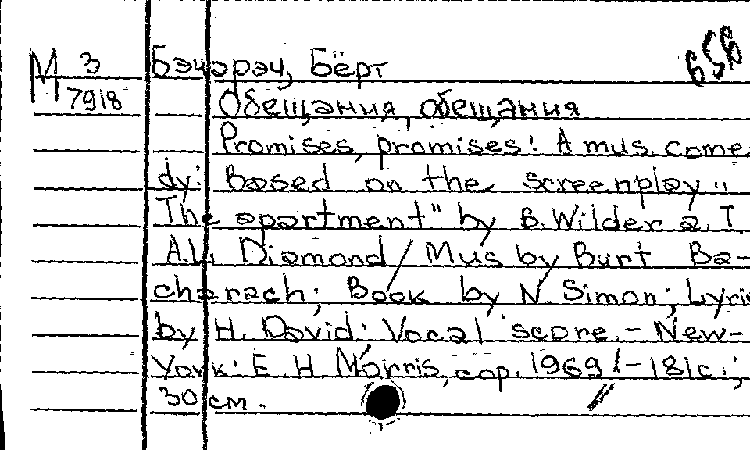 М 3
7918
656
Бэчэрэч, Бёрт
Обещания, обещания
Promises, promises: A mus. come
dy: Based on the screenplay "
The apartment" by B. Wilder a. I.
A.L. Diamond / Mus by Burt Ba-
charach; Book by N. Simon; Lyric
by H. David: Vocal score. - New-
York: E. H. Morris, cop. 1969. - 181 c.;
30 см.